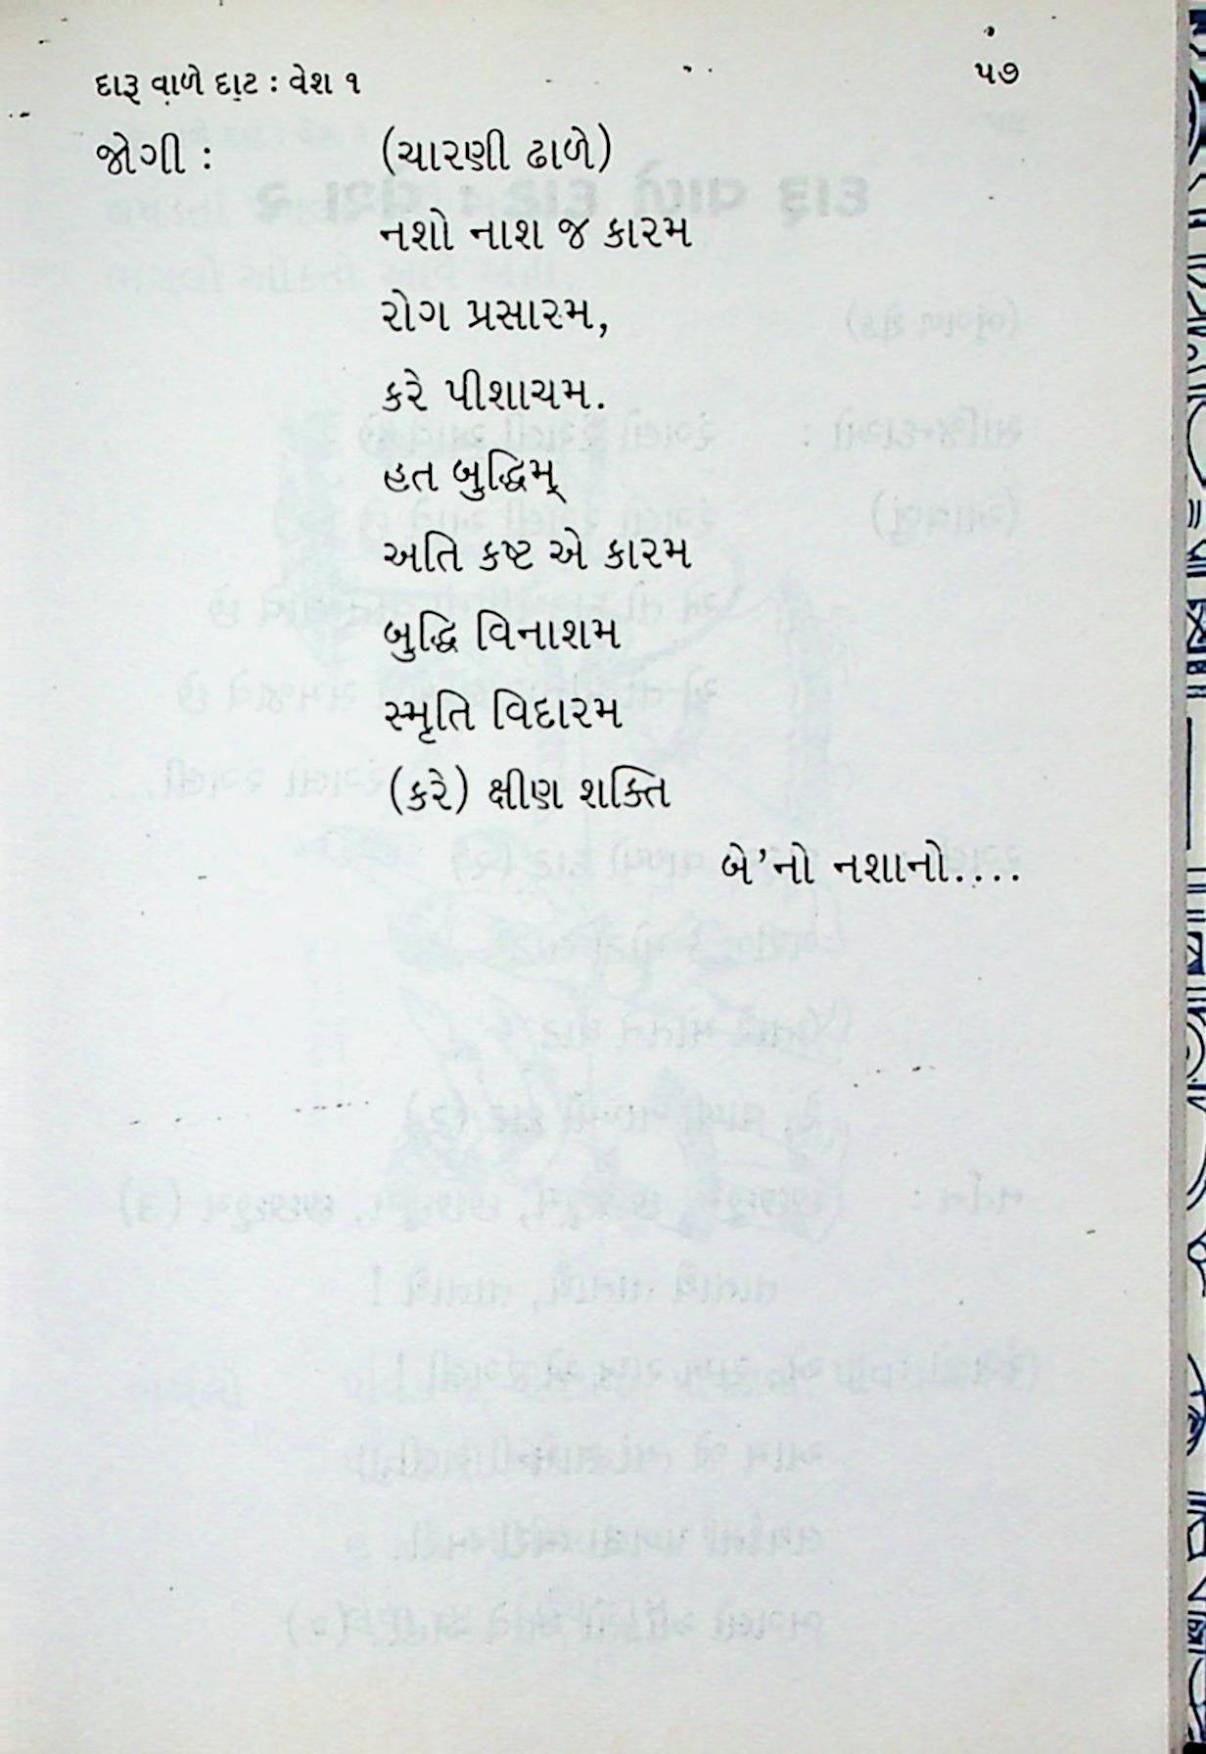 દારૂ વાળે દાટ : વેશ ૧ ૫૭
જોગી : (ચારણી ઢાળે)
નશો નાશ જ કારમ
રોગ પ્રસારમ,
કરે પીશાચમ.
હત બુદ્ધિમ્
અતિ કષ્ટ એ કારમ
બુદ્ધિ વિનાશમ
સ્મૃતિ વિદારમ
(કરે) ક્ષીણ શક્તિ
બે’નો નશાનો....